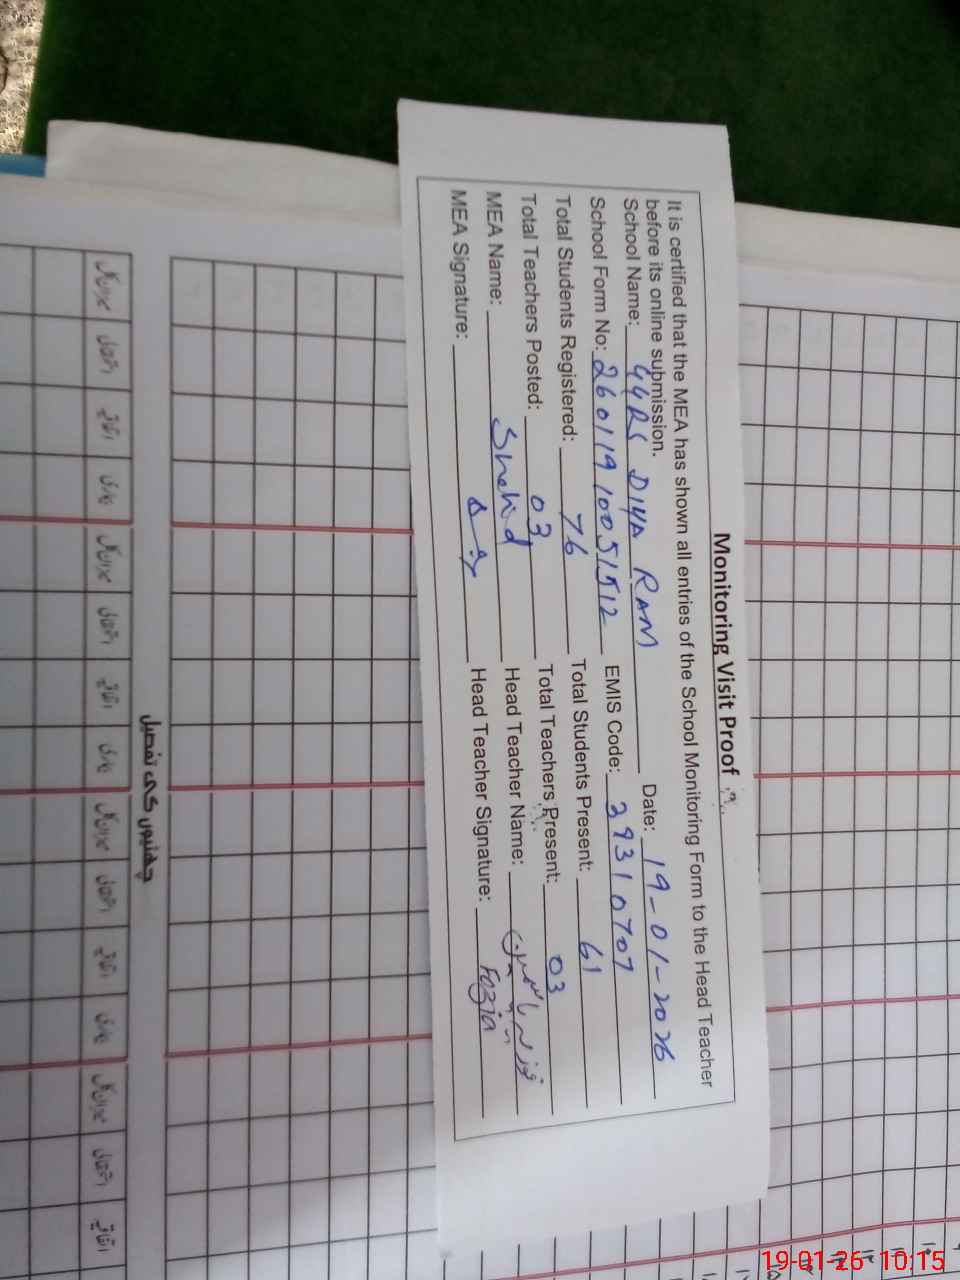 Monitoring Visit Proof
It is certified that the MEA has shown all entries of the School Monitoring Form to the Head Teacher
before its online submission.
School Name: GGPS DIYA RAM Date: 19-01-2026
School Form No: 260119 10051512 EMIS Code: 39310707
Total Students Registered: 76 Total Students Present: 61
Total Teachers Posted: 03 Total Teachers Present: 03
MEA Name: Shahid Head Teacher Name: فوزیہ یاسمین
MEA Signature: Head Teacher Signature: Fozia
چھٹیوں کی تفصیل
اتفاقیہ
اتفاقیہ
اتفاقیہ
اتفاقیہ
19-01-26 10:15